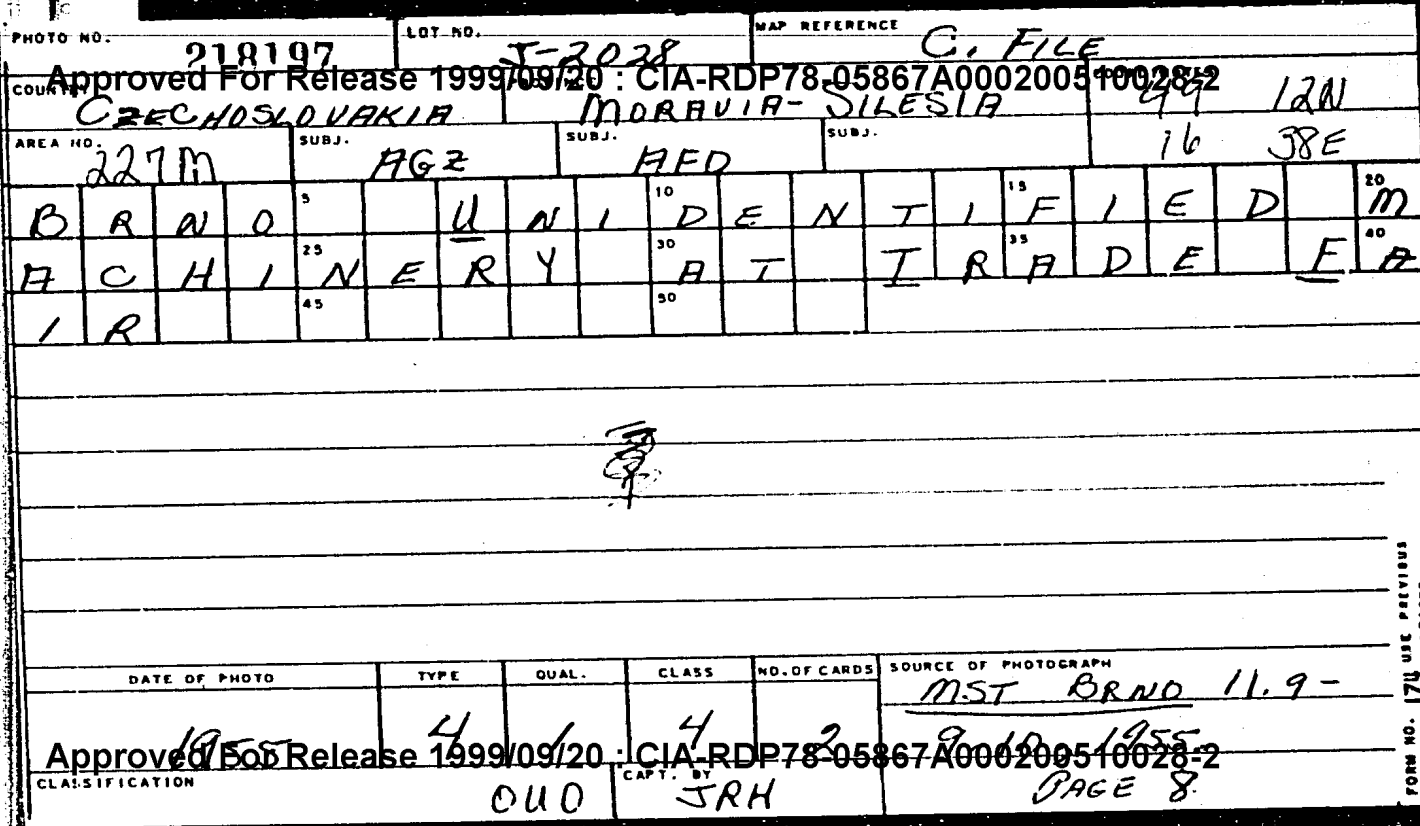 PHOTO NO. 218197 LOT NO. J-2028 MAP REFERENCE C. FILE
Approved For Release 1999/09/20 : CIA-RDP78-05867A000200510028-2
CZECHOSLOVAKIA MORAVIA-SILESIA 12N
AREA NO. 227M SUBJ. AGZ SUBJ. AFD SUBJ. 16 38E
BRNO UNIDENTIFIED M
ACHINERY AT TRADE FA
IR
DATE OF PHOTO TYPE QUAL. CLASS NO. OF CARDS SOURCE OF PHOTOGRAPH
MST BRNO 11.9-
1955 4 1 4 2 9-10-1955
Approved For Release 1999/09/20 : CIA-RDP78-05867A000200510028-2
CLASSIFICATION OUO CAPT. BY JRH PAGE 8
FORM NO. 17U USE PREVIOUS